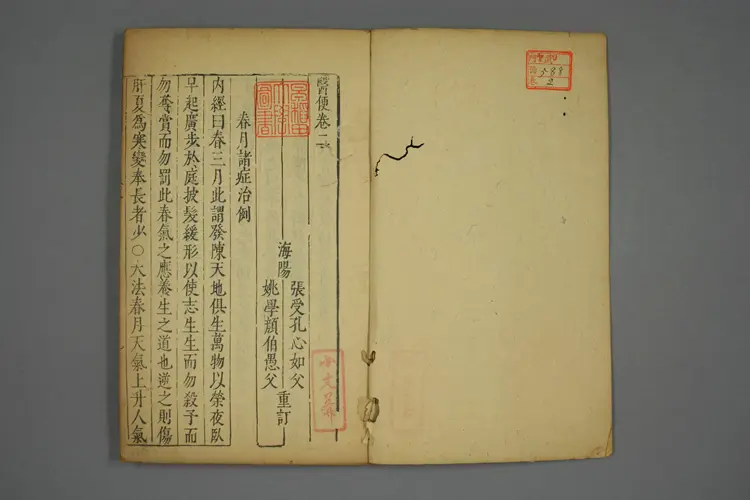 醫便卷二
海陽
張受孔心如父
姚學顏伯愚父
重訂
春月諸症治例
內經曰春三月此謂發陳天地俱生萬物以榮夜臥
早起廣步於庭披髮緩形以使志生生而勿殺予而
勿奪賞而勿罰此春氣之應養生之道也逆之則傷
肝夏爲寒變奉長者少○大法春月天氣上升人氣
589
2